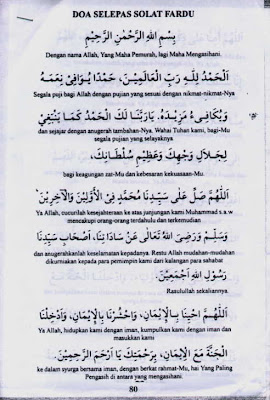 DOA SELEPAS SOLAT FARDU
بِسْمِ اللهِ الرَّحْمٰنِ الرَّحِيْمِ
Dengan nama Allah, Yang Maha Pemurah, lagi Maha Mengasihani.
اَلْحَمْدُ لِلّٰهِ رَبِّ الْعَالَمِيْنَ، حَمْدًا يُوَافِيْ نِعَمَهُ
Segala puji bagi Allah dengan pujian yang sesuai dengan nikmat-nikmat-Nya
وَيُكَافِيءُ مَزِيْدَهُ. يَارَبَّنَا لَكَ الْحَمْدُ كَمَا يَنْبَغِيْ
dan sejajar dengan anugerah tambahan-Nya. Wahai Tuhan kami, bagi-Mu
segala pujian yang selayaknya
لِجَلَالِ وَجْهِكَ وَعَظِيْمِ سُلْطَانِكَ.
bagi keagungan zat-Mu dan kebesaran kekuasaan-Mu.
اَللّٰهُمَّ صَلِّ عَلَى سَيِّدِنَا مُحَمَّدٍ فِي الْأَوَّلِيْنَ وَالْآخِرِيْنَ
Ya Allah, cucurilah kesejahteraan ke atas junjungan kami Muhammad s.a.w
mencakupi orang-orang terdahulu dan terkemudian
وَسَلِّمْ وَرَضِيَ اللهُ تَعَالَى عَنْ سَادَاتِنَا، أَصْحَابِ سَيِّدِنَا
dan anugerahkanlah keselamatan kepadanya. Restu Allah mudah-mudahan
dikurniakan kepada para pemimpin kami dari kalangan para sahabat
رَسُوْلِ اللهِ أَجْمَعِيْنَ.
Rasulullah sekaliannya.
اَللّٰهُمَّ احْيِنَا بِالْإِيْمَانِ، وَاحْشُرْنَا بِالْإِيْمَانِ، وَأَدْخِلْنَا
Ya Allah, hidupkan kami dengan iman, kumpulkan kami dengan iman dan
masukkan kami
الْجَنَّةَ مَعَ الْإِيْمَانِ، بِرَحْمَتِكَ يَا أَرْحَمَ الرَّحِمِيْنَ.
ke dalam syurga bersama iman, dengan berkat rahmat-Mu, hai Yang Paling
Pengasih di antara yang mengasihani.
80